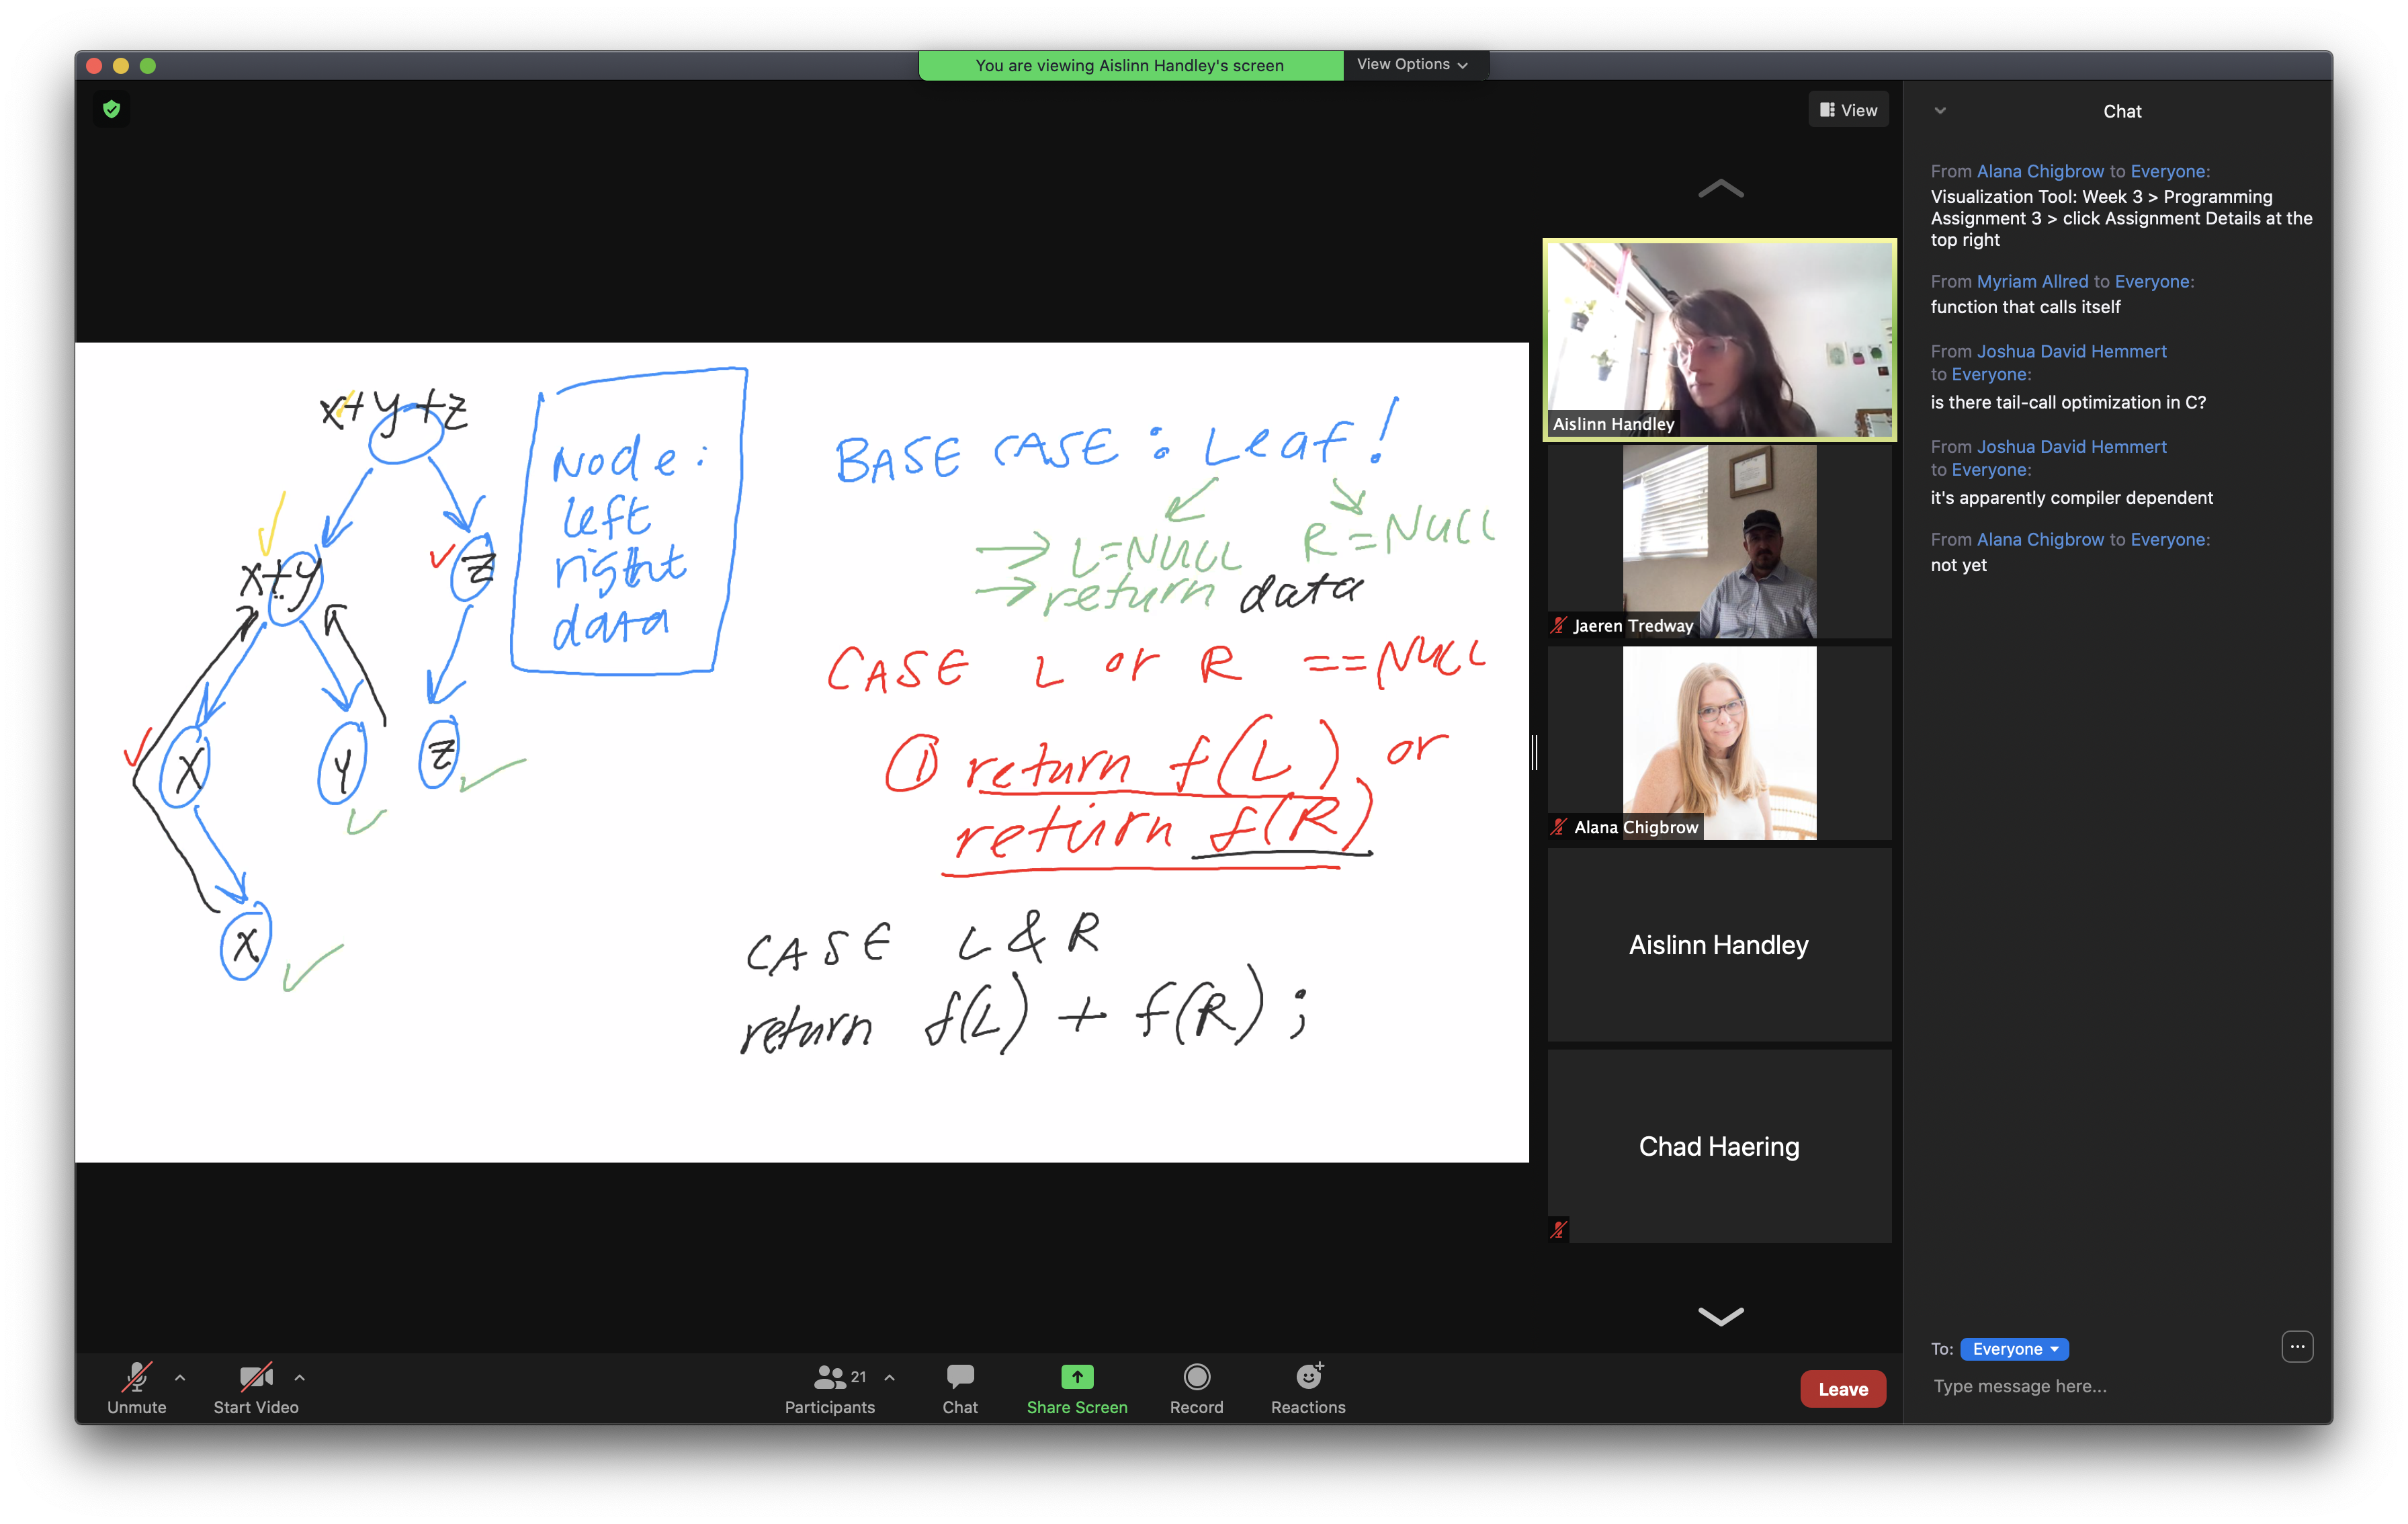 You are viewing Aislinn Handley's screen
View Options
View
x+y+z
x+y
z
x
y
z
x
Node:
left
right
data
BASE CASE: Leaf!
L=NULL R=NULL
return data
CASE L or R ==NULL
① return f(L) or
return f(R)
CASE L & R
return f(L) + f(R);
Aislinn Handley
Jaeren Tredway
Alana Chigbrow
Aislinn Handley
Chad Haering
Chat
From Alana Chigbrow to Everyone:
Visualization Tool: Week 3 > Programming
Assignment 3 > click Assignment Details at the
top right
From Myriam Allred to Everyone:
function that calls itself
From Joshua David Hemmert
to Everyone:
is there tail-call optimization in C?
From Joshua David Hemmert
to Everyone:
it's apparently compiler dependent
From Alana Chigbrow to Everyone:
not yet
To: Everyone
Type message here...
Unmute
Start Video
21
Participants
Chat
Share Screen
Record
Reactions
Leave